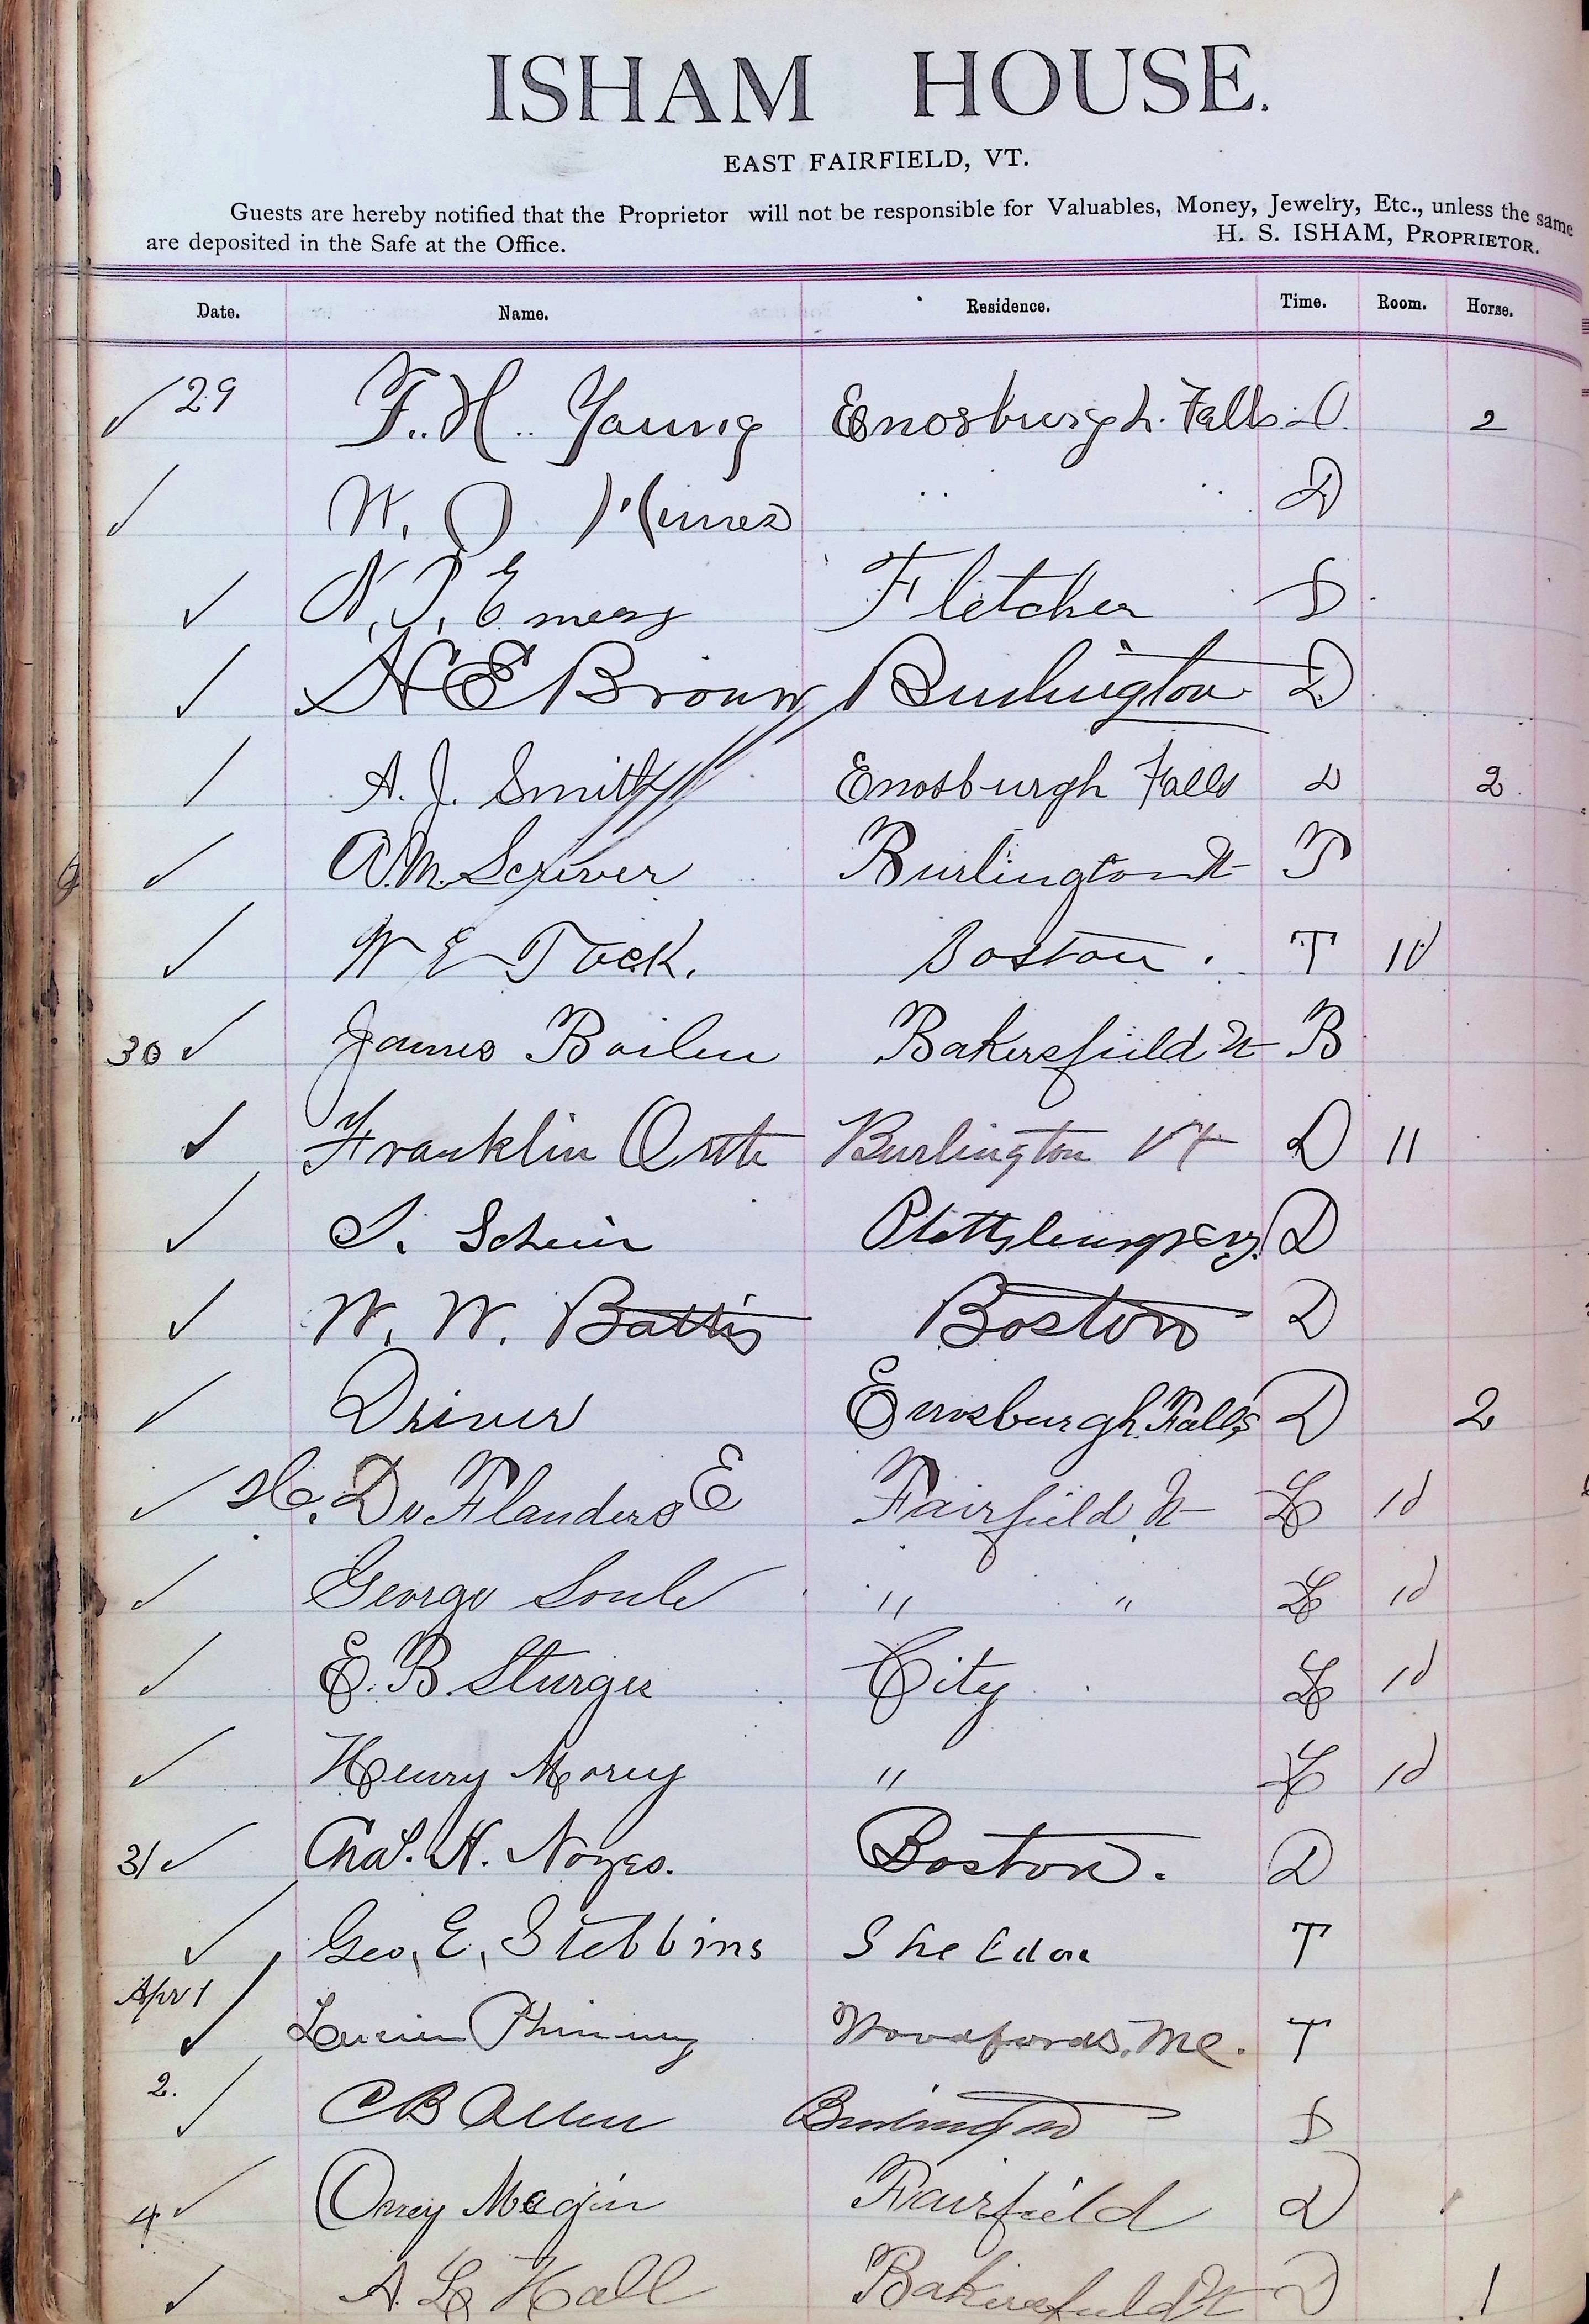 ISHAM HOUSE.
EAST FAIRFIELD, VT.
Guests are hereby notified that the Proprietor will not be responsible for Valuables, Money, Jewelry, Etc., unless the same
are deposited in the Safe at the Office. H. S. ISHAM, PROPRIETOR.
Date. Name. Residence. Time. Room. Horse.
✓ 29 F. H. Young Enosburgh Falls D. 2
✓ W. " " D
✓ N. J. Emery Fletcher D
✓ E Brown Burlington D
✓ A. J. Smith Enosburgh Falls D 2
✓ A. M. Scriver Burlington Vt T
✓ W E Tuck. Boston T 10
30 ✓ James Bailey Bakersfield Vt B
✓ Franklin Burlington Vt D 11
✓ Schein D
✓ W. W. Battis Boston D
✓ Driver Enosburgh Falls D 2
✓ Dr Flanders E Fairfield Vt L 10
✓ George Soule " " L 10
✓ E. B. Sturges City L 10
✓ Henry Morey " L 10
31 ✓ Chas. H. Noyes. Boston. D
✓ Geo. E. Stebbins Sheldon T
Apr 1 ✓ Lucien Phinney Woodfords, Me. T
2. ✓ C B Allen Burlington D
4 ✓ Orrey Magin Fairfield D
✓ A. L. Hall Bakersfield Vt D 1